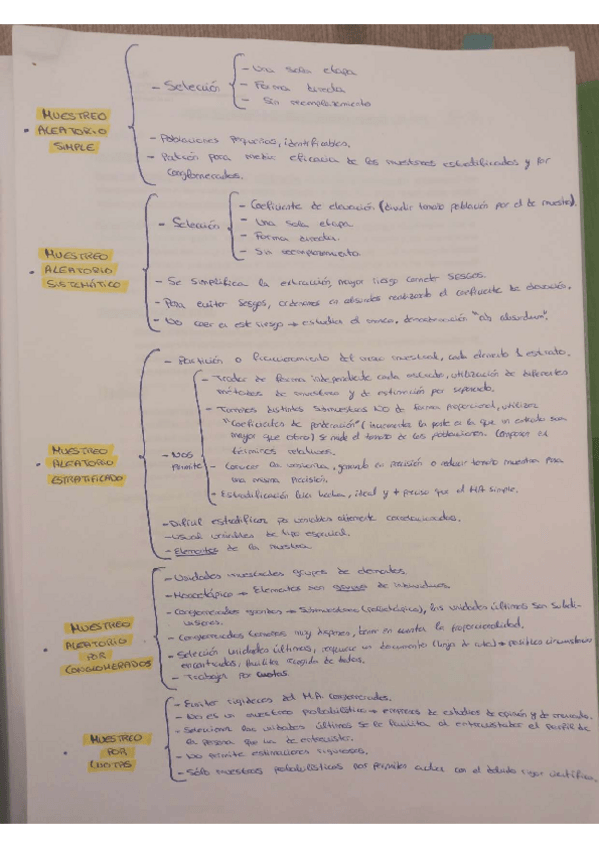 MUESTREO
ALEATORIO
SIMPLE
- Selección
- Una sola etapa
- Forma directa
- Sin reemplazamiento
- Poblaciones pequeñas, identificables.
- Patrón para medir eficacia de los muestreos estratificados y por
conglomerados.
MUESTREO
ALEATORIO
SISTEMÁTICO
- Selección
- Coeficiente de elevación. (dividir tamaño población por el de muestra).
- Una sola etapa
- Forma directa.
- Sin reemplazamiento.
- Se simplifica la extracción, mayor riesgo cometer SESGOS.
- Para evitar sesgos, ordenamos en absurdo realizando el coeficiente de elevación.
- No caer en este riesgo → estudiar el marco, denominación "ab absurdum".
MUESTREO
ALEATORIO
ESTRATIFICADO
- Partición o fraccionamiento del marco muestral, cada elemento 1 estrato.
- NOS
Permite
- Tratar de forma independiente cada estrato, utilización de diferentes
métodos de muestreo y de estimación por separado.
- Tamaños distintos submuestras NO de forma proporcional, utilizar
"Coeficientes de ponderación" (incrementa la parte a la que un estrato sea
mayor que otro) se mide el tamaño de las poblaciones.
términos relativos.
- Conocer la varianza, ganando en precisión o reducir tamaño muestra para
una misma precisión.
- Estratificación bien hecha, ideal y + preciso que el MA simple.
- Difícil estratificar por variables altamente correlacionadas.
- Usual variables de tipo espacial.
- Elementos de la muestra.
MUESTREO
ALEATORIO
POR
CONGLOMERADOS
- Unidades muestrales grupos de elementos.
- Monoetápico → Elementos son grupos de individuos.
- Conglomerados grandes → Submuestreo (polietápico), las unidades últimas son subdi-
visiones.
- Conglomerados tamaños muy dispares, tener en cuenta la proporcionalidad.
- Selección unidades últimas, requiere un documento (hoja de ruta) → posibles circunstancias
encontradas, facilita recogida de datos.
- Trabajos por cuotas.
MUESTREO
POR
CUOTAS
- Evitar rigideces del M.A. conglomerados.
- No es un muestreo probabilístico → empresas de estudios de opinión y de mercado.
- Selecciona las unidades últimas se le facilita al entrevistador el perfil de
la persona que ha de entrevistar.
- No permite estimaciones rigurosas.
- Sólo muestreos probabilísticos nos permiten con el debido rigor científico.